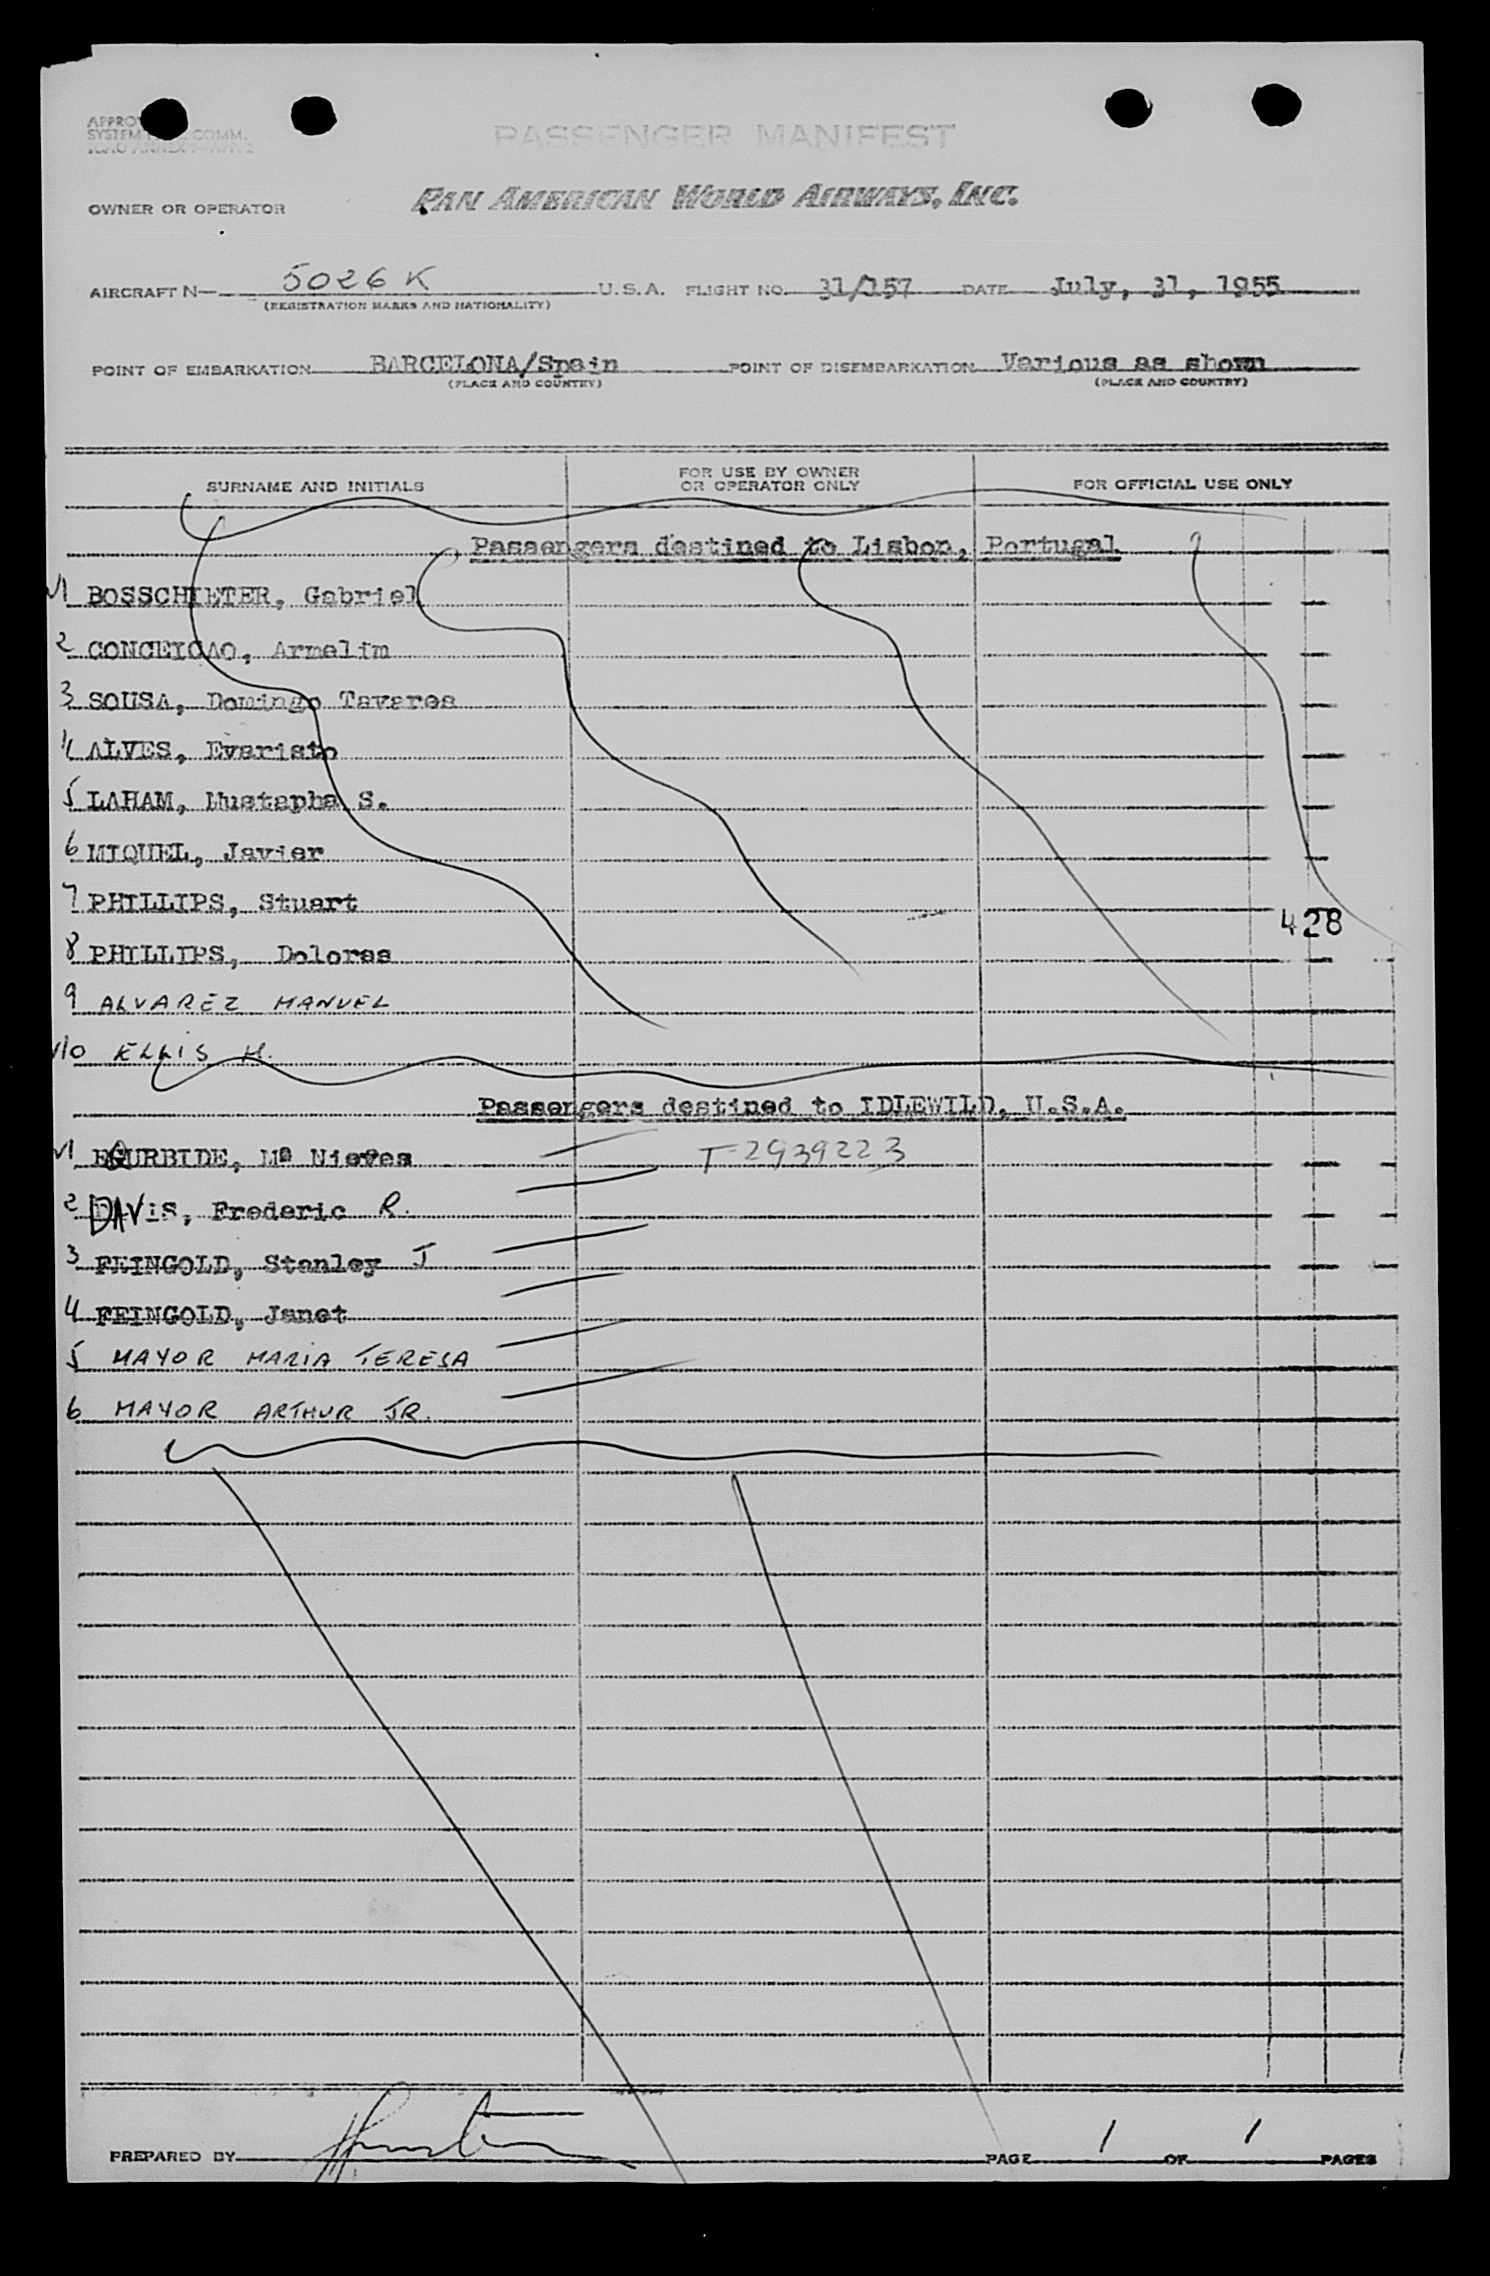 PASSENGER MANIFEST
OWNER OR OPERATOR PAN AMERICAN WORLD AIRWAYS, INC.
AIRCRAFT N— 5026K U.S.A. FLIGHT NO. 31/157 DATE July, 31, 1955
(REGISTRATION MARKS AND NATIONALITY)
POINT OF EMBARKATION BARCELONA/Spain POINT OF DISEMBARKATION Various as shown
(PLACE AND COUNTRY) (PLACE AND COUNTRY)
SURNAME AND INITIALS FOR USE BY OWNER OR OPERATOR ONLY FOR OFFICIAL USE ONLY
Passengers destined to Lisbon, Portugal
1 BOSSCHIETER, Gabriel
2 CONCEICAO, Armelim
3 SOUSA, Domingo Tavares
4 ALVES, Evaristo
5 LAHAM, Mustapha S.
6 MIQUEL, Javier
7 PHILLIPS, Stuart
428
8 PHILLIPS, Dolores
9 ALVAREZ MANUEL
10 ELLIS H.
Passengers destined to IDLEWILD, U.S.A.
1 EGURBIDE, Mª Nieves T-2939223
2 DAVIS, Frederic R.
3 FEINGOLD, Stanley J
4 FEINGOLD, Janet
5 MAYOR MARIA TERESA
6 MAYOR ARTHUR JR.
PREPARED BY PAGE 1 OF 1 PAGES